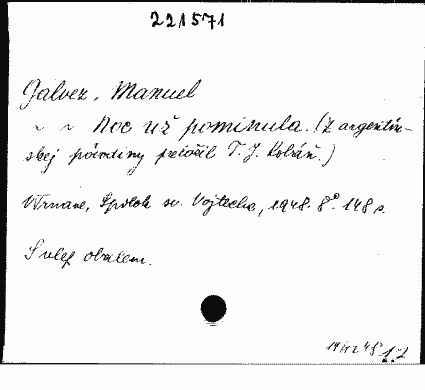 221571
Galvez, Manuel
~ ~ Noc už pominula. (Z argentín-
skej pôvodiny preložil T. J. Kobáň.)
V Trnave, Spolok sv. Vojtecha, 1948. 8° 148 s.
S vlep obalem.